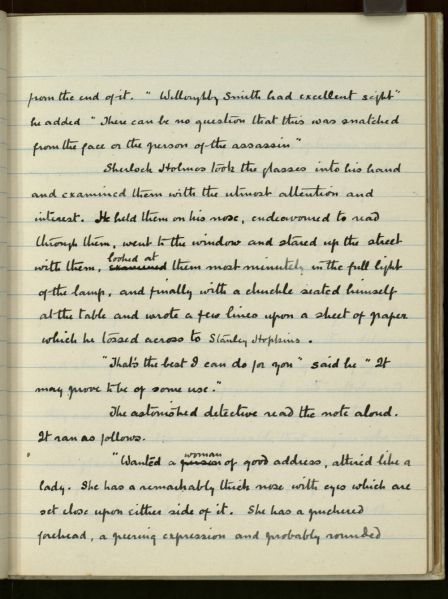 from the end of it. " Willoughby Smith had excellent sight"
he added " There can be no question that this was snatched
from the face or the person of the assassin"
Sherlock Holmes took the glasses into his hand
and examined them with the utmost attention and
interest. He held them on his nose, endeavoured to read
through them, went to the window and stared up the street
with them, examined looked at them most minutely in the full light
of the lamp, and finally with a chuckle seated himself
at the table and wrote a few lines upon a sheet of paper
which he tossed across to Stanley Hopkins.
"That's the best I can do for you" said he " It
may prove to be of some use."
The astonished detective read the note aloud.
It ran as follows.
"Wanted a person woman of good address, attired like a
lady. She has a remarkably thick nose with eyes which are
set close upon either side of it. She has a puckered
forehead, a peering expression and probably rounded